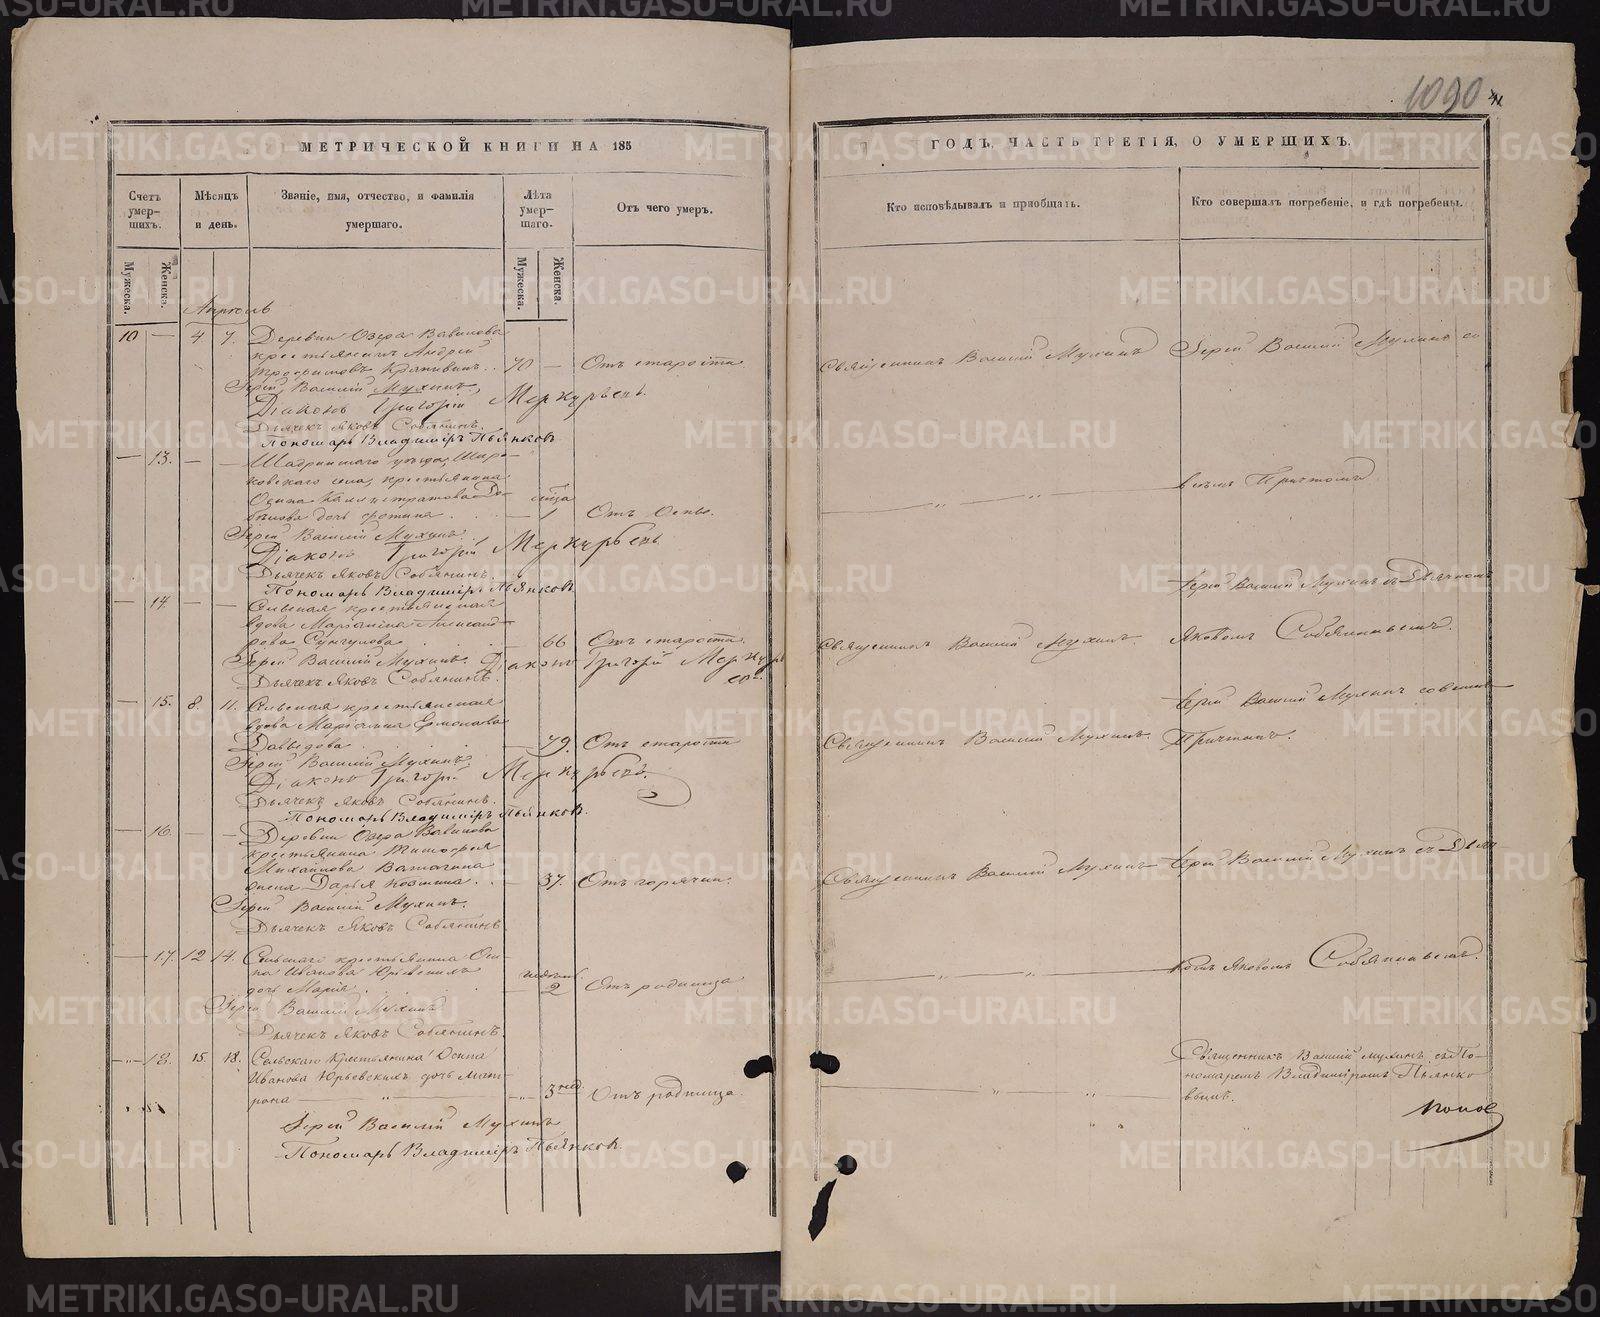 1090
МЕТРИЧЕСКОЙ КНИГИ НА 185
ГОДЪ, ЧАСТЬ ТРЕТІЯ, О УМЕРШИХЪ.
Счетъ умер-шихъ.
Мѣсяцъ и день.
Званіе, имя, отчество, и фамилія
умершаго.
Лѣта умер-шаго.
Отъ чего умеръ.
Кто исповѣдывалъ и пріобщалъ.
Кто совершалъ погребеніе, и гдѣ погребены.
Мужеска.
Женска.
Мужеска.
Женска.
Апрѣль
10 — 4 7. Деревни Озера Вавилова
крестьянинъ Андрей
Трофимовъ Крапивинъ. 70 — Отъ старости
Священникъ Василій Мухинъ
Іерей Василій Мухинъ со
Іерей Василій Мухинъ,
Діаконъ Григорій Меркурьевъ.
Дьячекъ Яковъ Собянинъ.
Пономарь Владиміръ Пьянковъ
— 13. — — Шадринскаго уѣзда, Широ-
ковскаго села, крестьянина
Осипа Калистратова
дочь Фотина 1 Отъ оспы.
всѣмъ Причтомъ
Іерей Василій Мухинъ.
Діаконъ Григорій Меркурьевъ
Дьячекъ Яковъ Собянинъ.
Пономарь Владиміръ Пьянковъ
— 14. — — Сельская крестьянская
вдова Маріанна Александ-
рова Сунгурова 66 Отъ старости.
Священникъ Василій Мухинъ.
Іерей Василій Мухинъ съ Дьячкомъ
Яковомъ Собяниньемъ.
Іерей Василій Мухинъ. Діаконъ Григорій Меркурь
евъ.
Дьячекъ Яковъ Собянинъ.
— 15. 8. 11. Сельская крестьянская
вдова Маріанна Ермолаева
Давыдова 79. Отъ старости
Священникъ Василій Мухинъ
Іерей Василій Мухинъ со всѣмъ
Причтомъ.
Іерей Василій Мухинъ.
Діаконъ Григорій Меркурьевъ.
Дьячекъ Яковъ Собянинъ.
Пономарь Владиміръ Пьянковъ.
— 16. — — Деревни Озера Вавилова
крестьянина Тимофея
Михайлова Ватагина
жена Дарья 37. Отъ горячки.
Священникъ Василій Мухинъ
Іерей Василій Мухинъ съ Дьяч-
Іерей Василій Мухинъ.
Дьячекъ Яковъ Собянинъ
— 17. 12 14. Сельскаго крестьянина Оси-
па Иванова Юрьевскихъ
дочь Марія 2 Отъ родимца
комъ Яковомъ Собяниньемъ.
Іерей Василій Мухинъ
Дьячекъ Яковъ Собянинъ.
18. 15. 18. Сельскаго крестьянина Осипа
Иванова Юрьевскихъ дочь Мат-
рона 3 нед. Отъ родимца.
Священникъ Василій Мухинъ съ По-
номаремъ Владиміромъ Пьянко-
вымъ.
Іерей Василій Мухинъ
Пономарь Владиміръ Пьянковъ.
Попов
METRIKI.GASO-URAL.RU